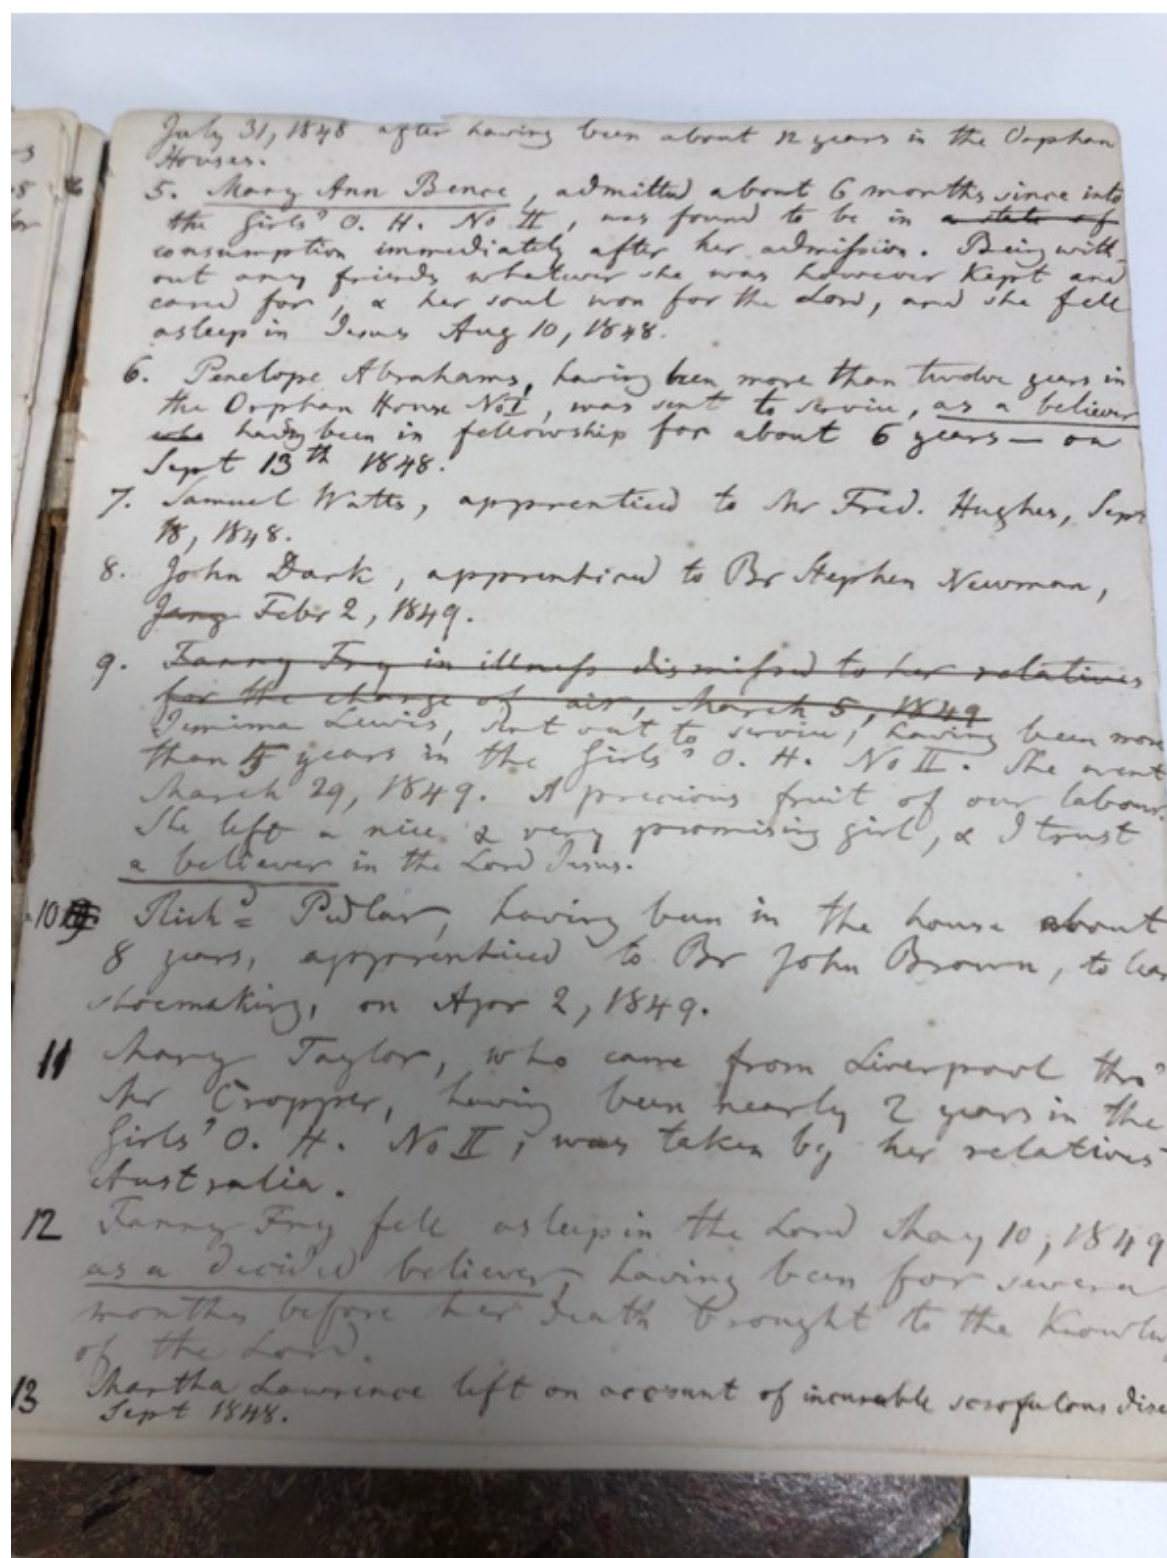 July 31, 1848 after having been about 12 years in the Orphan
Houses.
5. Mary Ann Bence, admitted about 6 months since into
the Girls' O. H. No II, was found to be in a state of
consumption immediately after her admission. Being with-
out any friends whatever she was however kept and
cared for, & her soul won for the Lord, and she fell
asleep in Jesus Aug 10, 1848.
6. Penelope Abrahams, having been more than twelve years in
the Orphan House No I, was sent to service, as a believer
who having been in fellowship for about 6 years — on
Sept 13th 1848.
7. Samuel Watts, apprenticed to Mr Fred. Hughes, Sept
18, 1848.
8. John Dark, apprenticed to Br Stephen Newman,
Jany Febr 2, 1849.
9. Fanny Fry in illness dismissed to her relatives
for the change of air, March 5, 1849
Jemima Lewis, sent out to service, having been more
than 5 years in the Girls' O. H. No II. She went
March 29, 1849. A precious fruit of our labour.
She left a nice & very promising girl, & I trust
a believer in the Lord Jesus.
10 Richd Pidlar, having been in the house about
8 years, apprenticed to Br John Brown, to
shoemaking, on Apr 2, 1849.
11 Mary Taylor, who came from Liverpool thro'
Mr Cropper, having been nearly 2 years in the
Girls' O. H. No II, was taken by her relatives
Australia.
12 Fanny Fry fell asleep in the Lord May 10, 1849
as a decided believer, having been for severa
months before her death brought to the Knowle
of the Lord.
13 Martha Lawrence left on account of incurable scrofulous dise
Sept 1848.